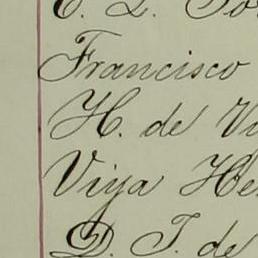 C. L.
Francisco
H. de
Viya
D. T. de